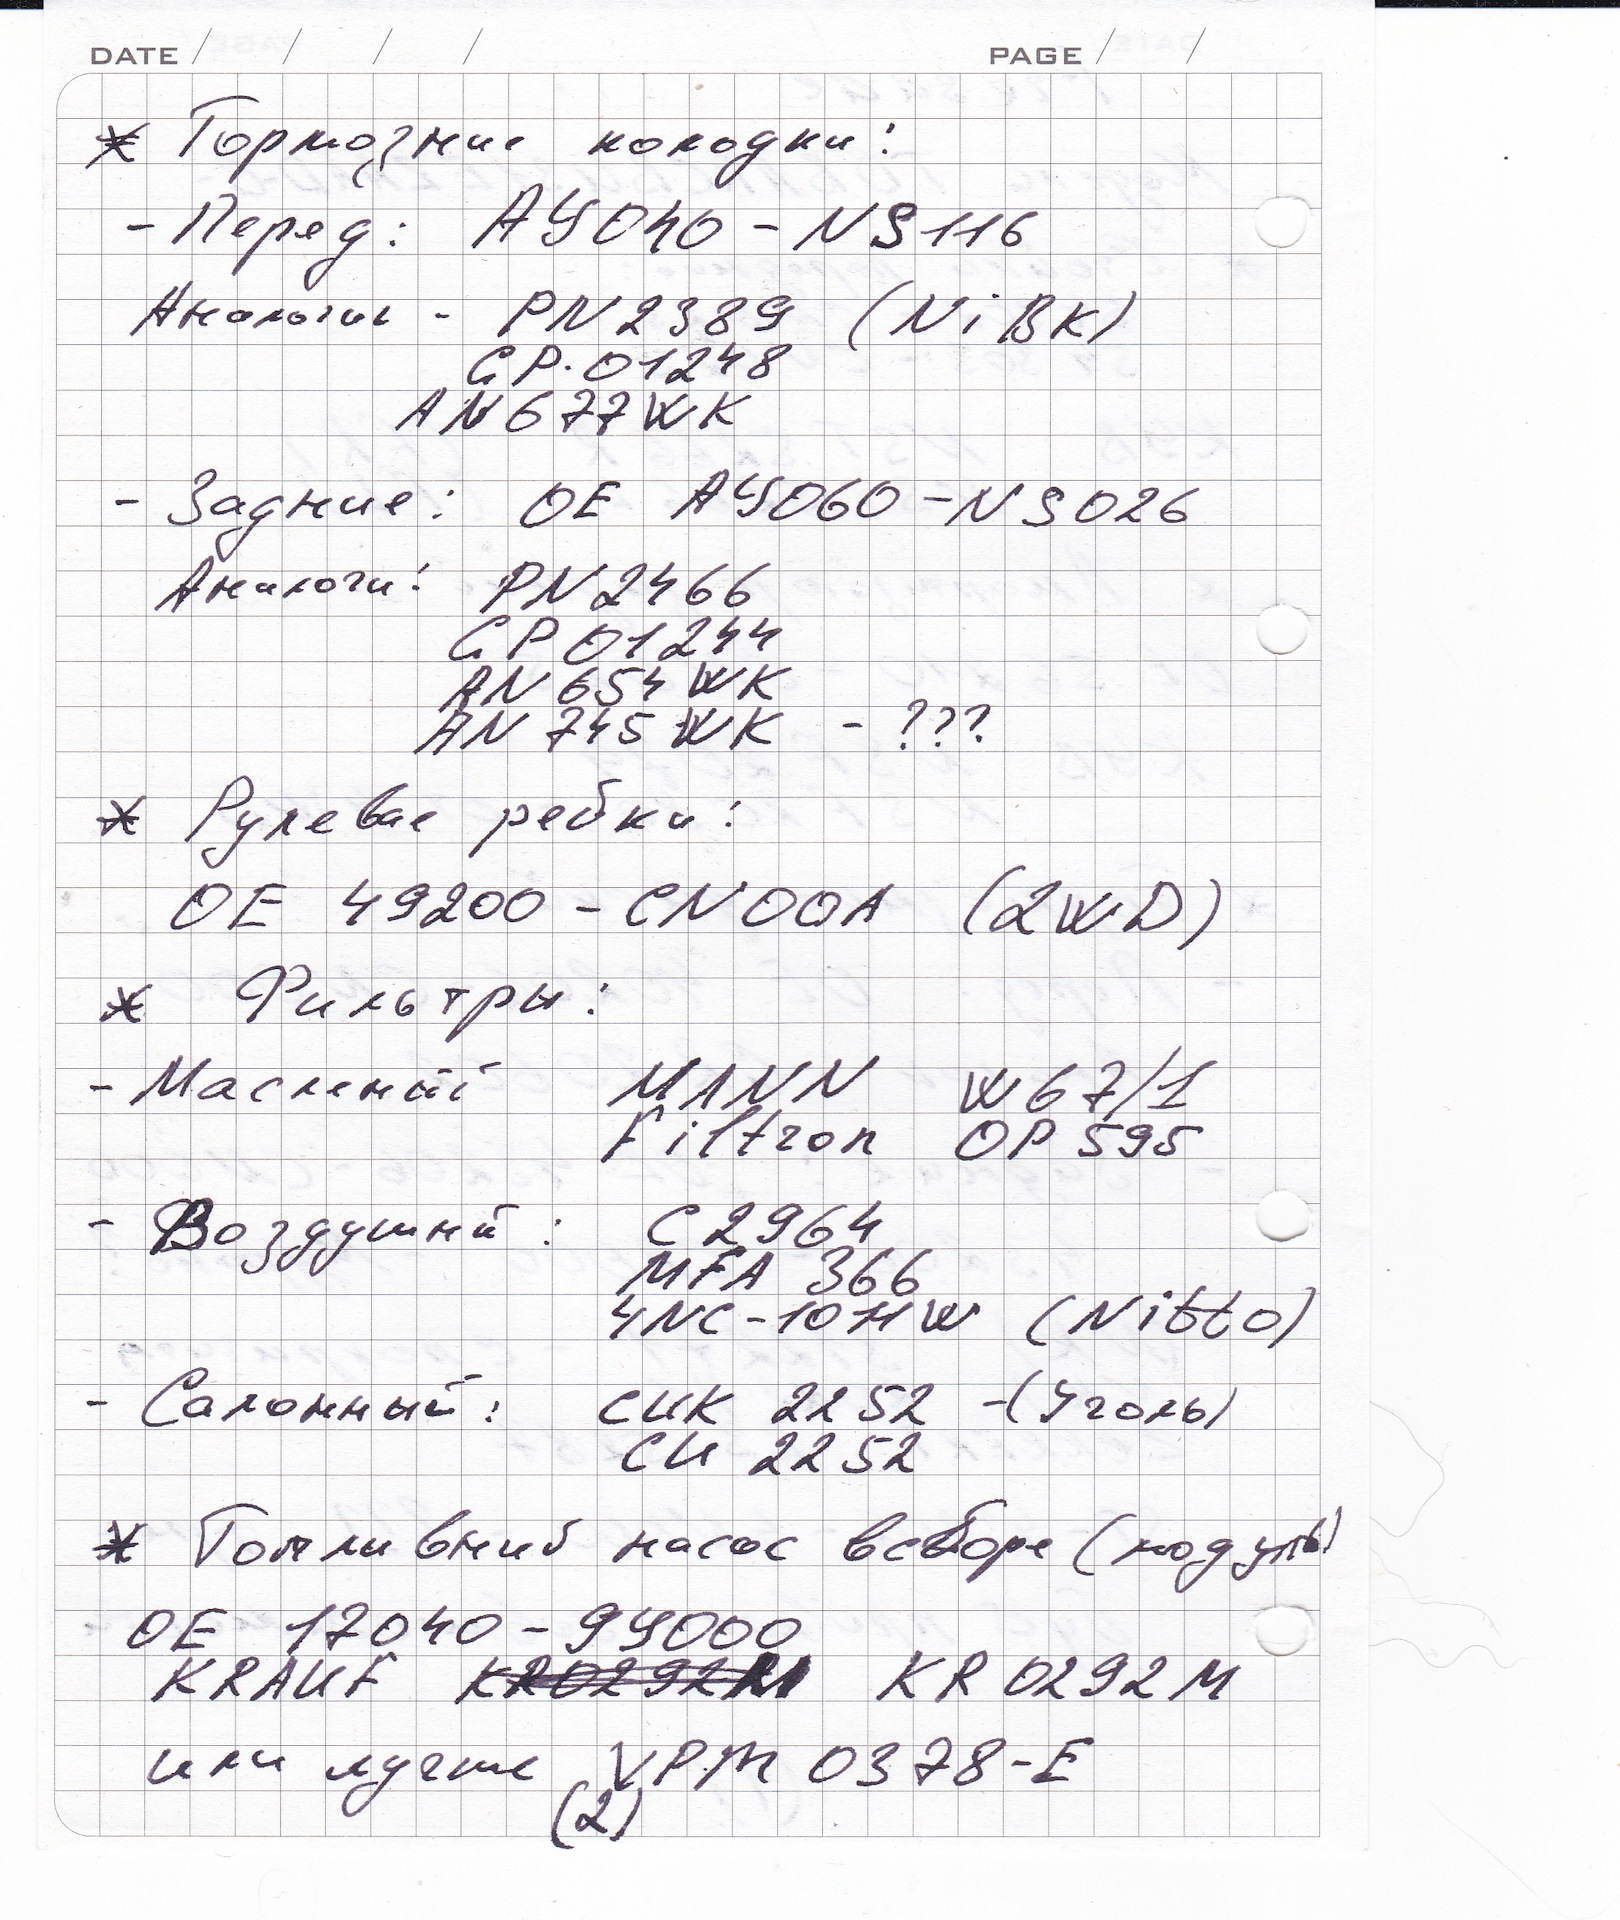 DATE / / / /
PAGE / /
* Тормозные колодки:
- Перед: AY040 - NS116
Аналоги - PN2389 (NiBK)
CP.01248
AN677WK
- Задние: OE AY060 - NS026
Аналоги: PN2466
CP01244
AN654WK
AN745WK - ???
* Рулевые рейки:
OE 49200 - CN00A (2WD)
* Фильтры:
- Масленый MANN W67/1
Filtron OP595
- Воздушный: C2964
MFA 366
4NC-1011W (Nitto)
- Салонный: CUK 2252 - (Уголь)
CU 2252
* Топливный насос в сборе (модуль)
OE 17040 - 9Y000
KRAUF KR0292M KR0292M
или лучше VPM 0378-E
(2)